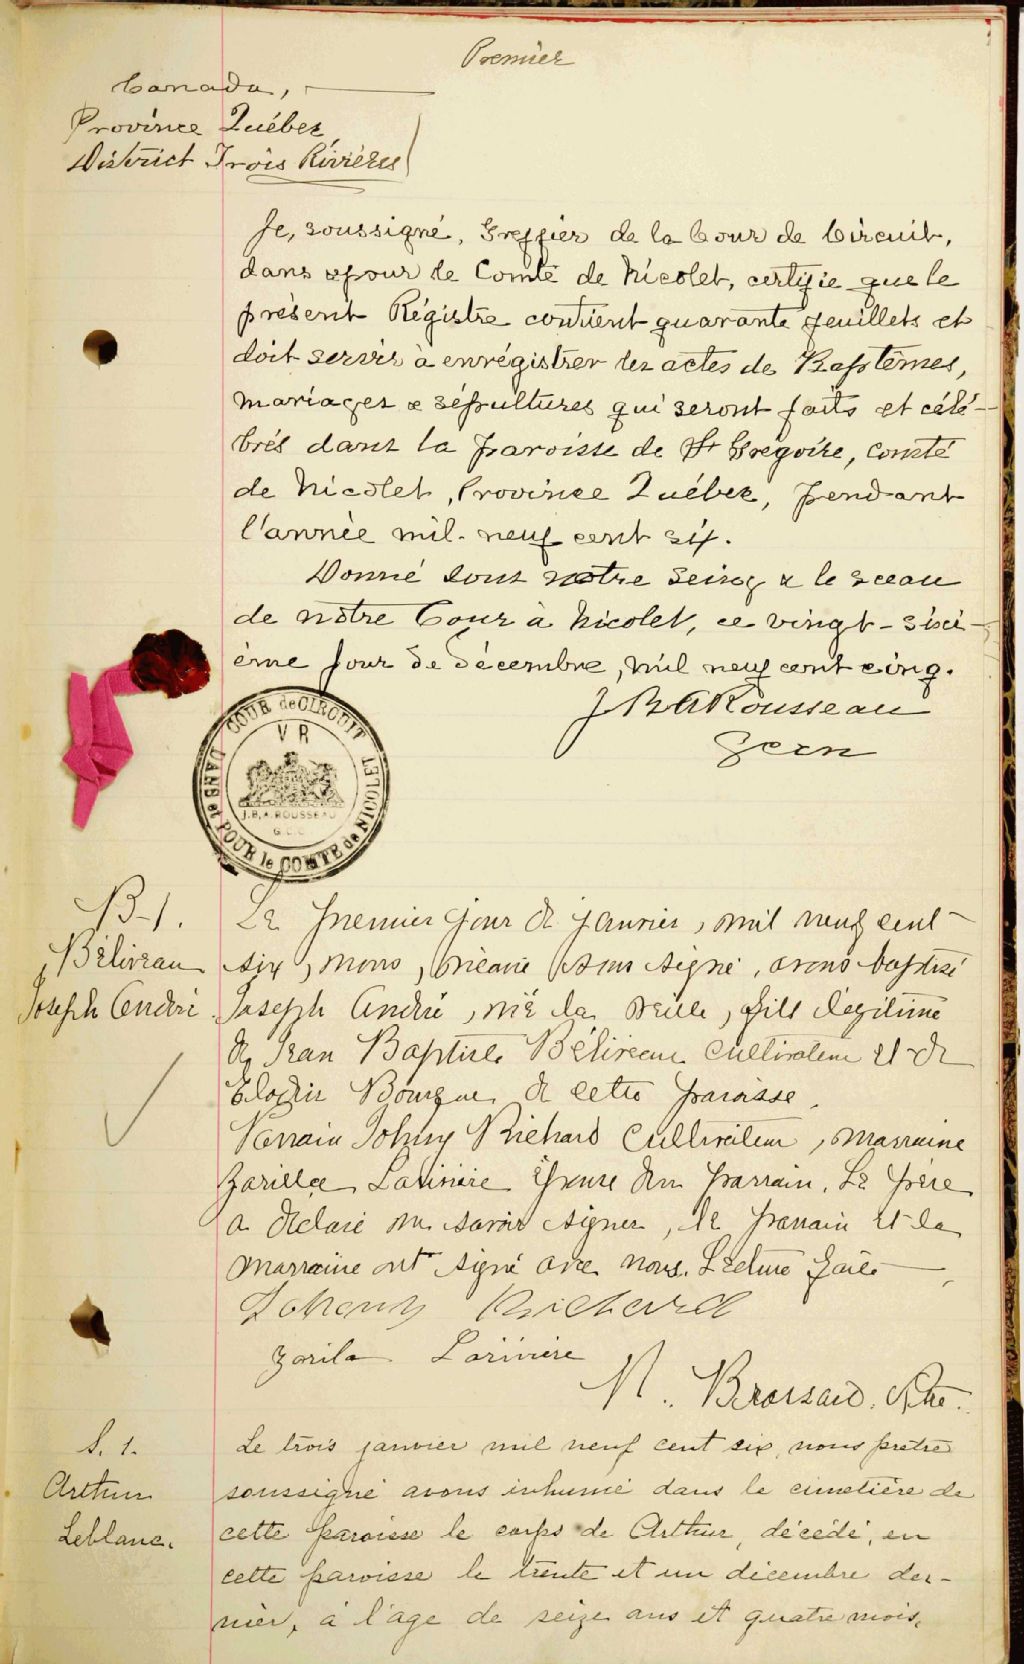 Premier
Canada,
Province Québec
District Trois Rivières
Je, soussigné, Greffier de la Cour de Circuit,
dans & pour le Comté de Nicolet, certifie que le
présent Régistre contient quarante feuillets et
doit servir à enrégistrer les actes de Baptêmes,
mariages & sépultures qui seront faits et célé-
brés dans la paroisse de St Grégoire, comté
de Nicolet, Province Québec, pendant
l'année mil-neuf cent six.
Donné sous notre Seing & le sceau
de nôtre Cour à Nicolet, ce vingt-sixi-
ème jour de décembre, mil neuf cent cinq.
J B A Rousseau
COUR de CIRCUIT
DANS et POUR le COMTE de NICOLET
V R
J.B.A. ROUSSEAU
G.C.C.
B-1.
Béliveau
Joseph André.
Le premier jour de janvier, mil neuf cent
six, nous, vicaire sous signé, avons baptisé
Joseph André, né la veille, fils légitime
de Jean Baptiste Béliveau cultivateur et de
Elodie Bourque de cette paroisse.
Parrain Johny Richard cultivateur, marraine
Zarilla Larivière épouse du parrain. Le père
a déclaré ne savoir signer, le parrain et la
marraine ont signé avec nous. Lecture faite
Johnny Richard
Zarila Larivière
N. Brassard. Ptre.
S. 1.
Arthur
Leblanc.
Le trois janvier mil neuf cent six, nous prêtre
soussigné avons inhumé dans le cimetière de
cette paroisse le corps de Arthur, décédé, en
cette paroisse le trente et un décembre der-
nier, à l'âge de seize ans et quatre mois,